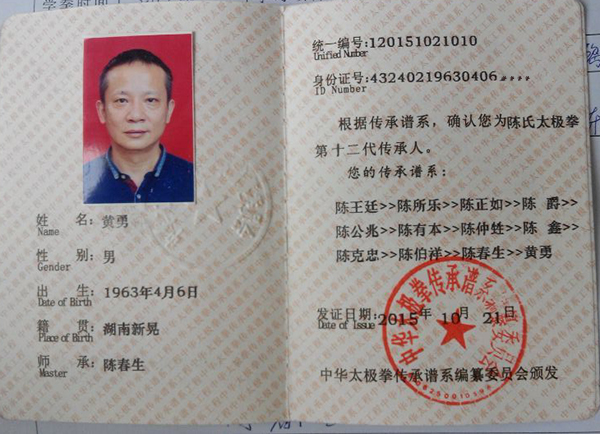 学拳时间
姓 名:黄勇
Name
性 别:男
Gender
出 生:1963年4月6日
Date of Birth
籍 贯:湖南新晃
Place of Birth
师 承:陈春生
Master
统一编号:120151021010
Unified Number
身份证号:43240219630406
ID Number
根据传承谱系，确认您为陈氏太极拳
第十三代传承人。
您的传承谱系:
陈王廷>>陈所乐>>陈正如>>陈 爵>>
陈公兆>>陈有本>>陈仲甡>>陈 鑫>>
陈克忠>>陈伯祥>>陈春生>>黄勇
发证日期:2015年 10月 21日
Date of Issue
中华太极拳传承谱系编纂委员会颁发
中华太极拳传承谱系编纂委员会